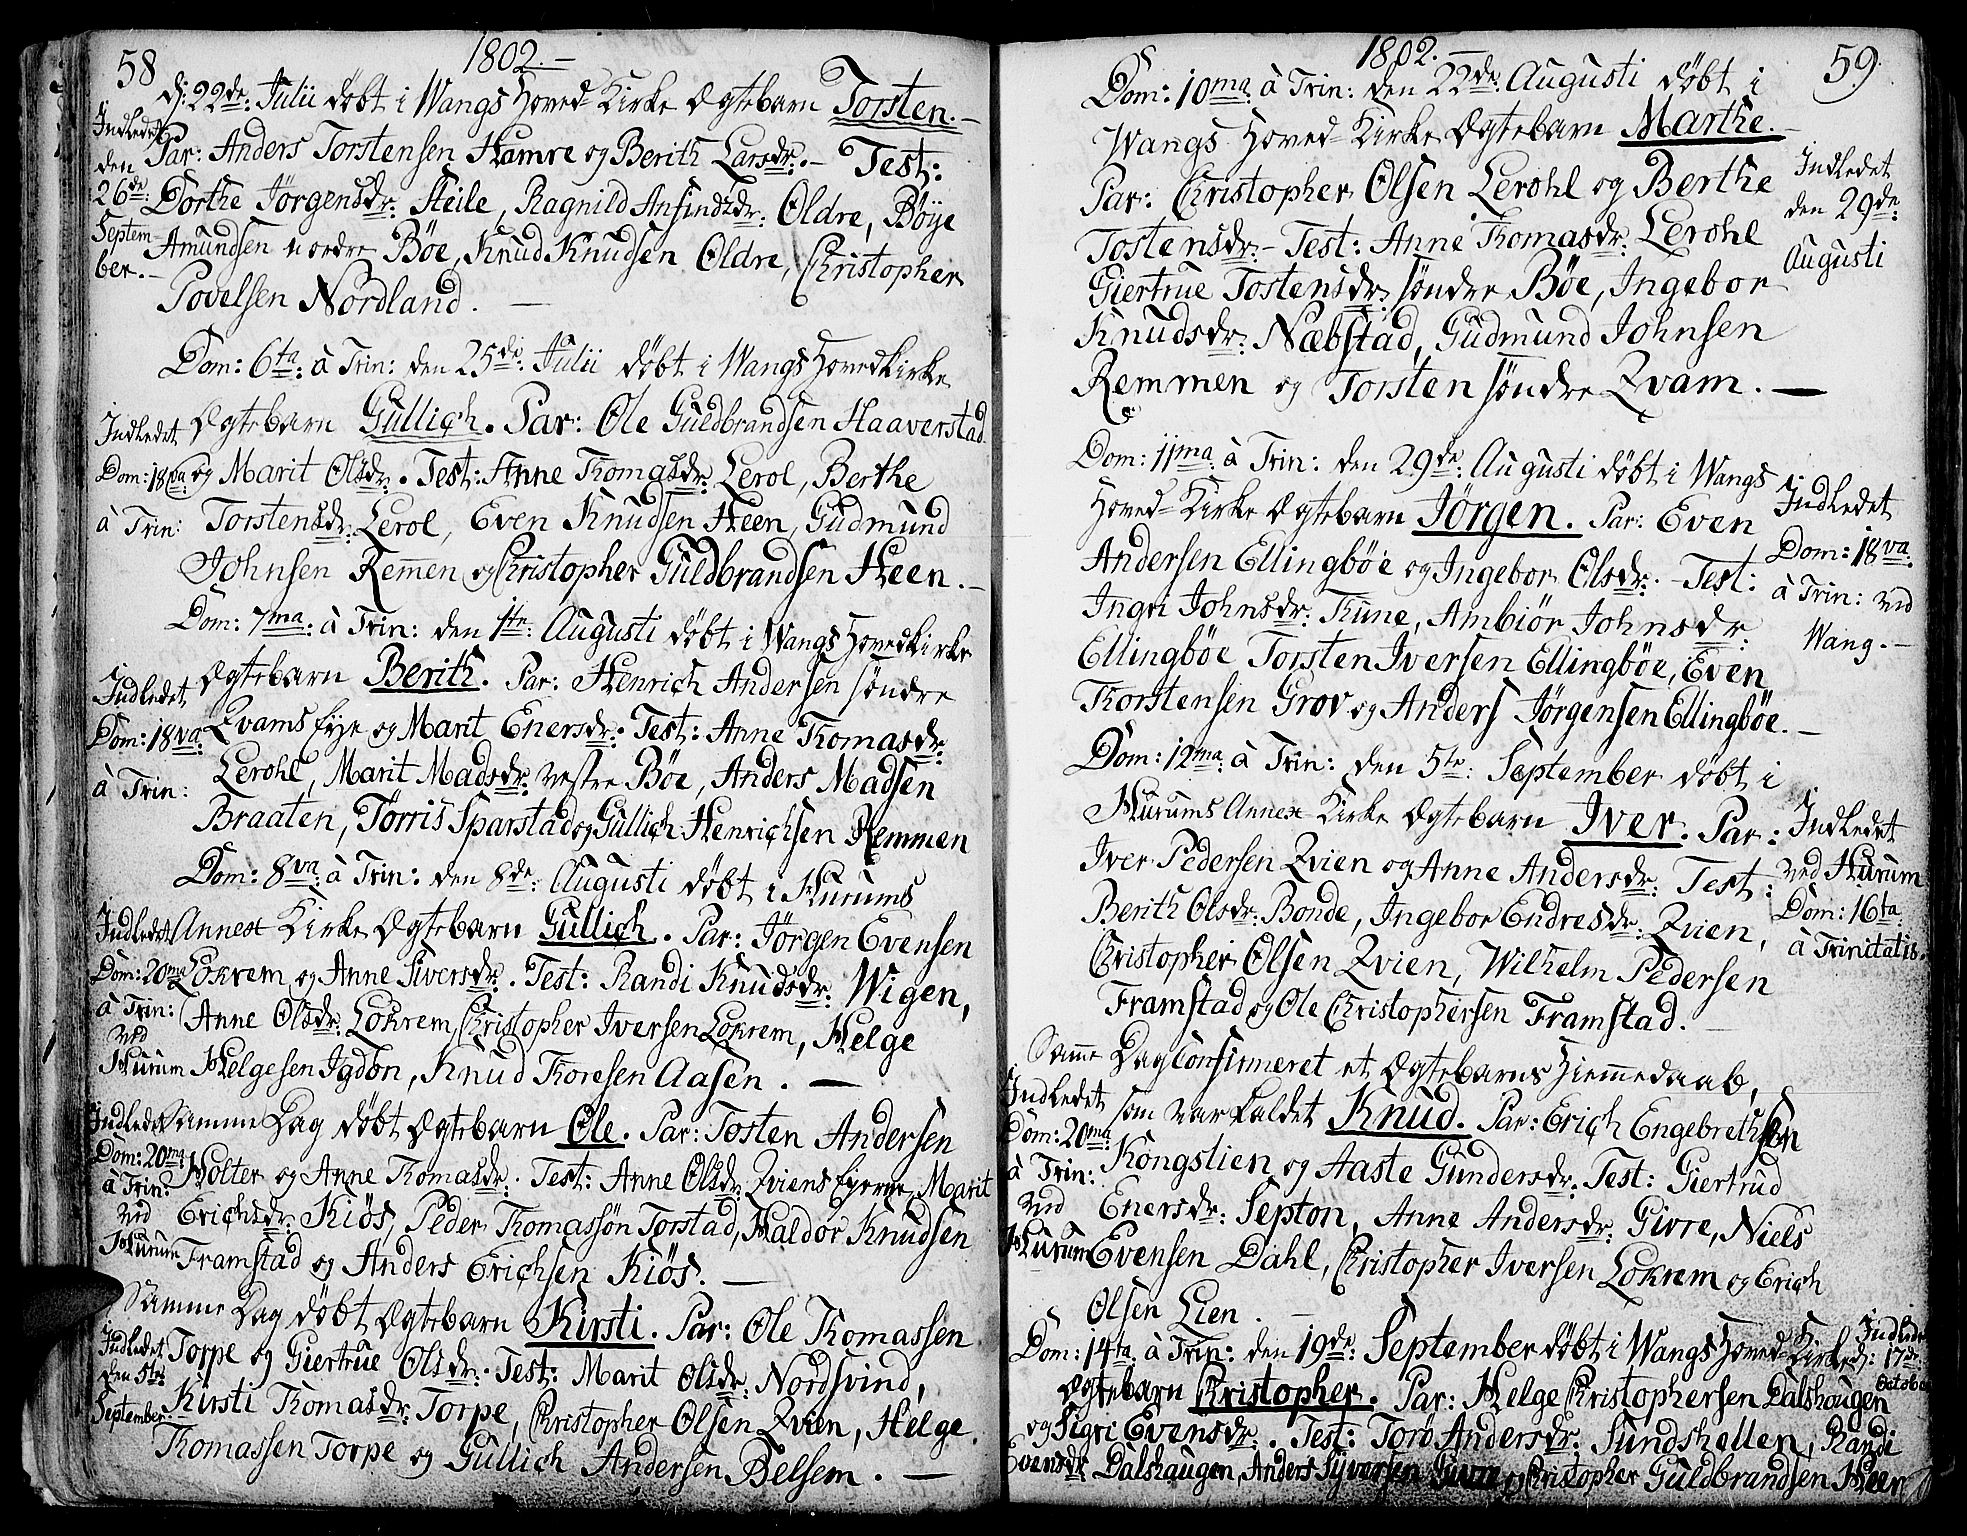 58
1802.–
Dj: 22de: Julii döbt i Wangs Hoved-Kirke Ægtebarn Torsten.–
Indledet
Par: Anders Torstensen Hamre og Berith Larsdr:.– Test:
den
26de:
Dorthe Jörgensdr: Heile, Ragnild Ansindsdr: Oldre, Böye
Septem-
Amundsen nordre Böe, Knud Knudsen Oldre, Christopher
ber.–
Povelsen Nordland. –
Dom: 6ta: à Trin: den 25de: Julii döbt i Wangs Hovedkirke
Ægtebarn Gullich. Par: Ole Guldbrandsen Haaverstad
Indledet
Dom: 18va
og Marit Olsdr:. Test: Anne Thomasdr: Lerol, Berthe
à Trin:
Torstensdr: Lerol, Even Knudsen Heen, Gudmund
Johnsen Remen og Christopher Guldbrandsen Heen.–
Dom: 7ma: à Trin: den 1te: Augusti döbt i Wangs Hovedkirke
Ægtebarn Berith. Par: Henrich Andersen söndre
Indledet
Qvams Eye og Marit Enersdr:. Test: Anne Thomasdr:
Dom: 18va:
Lerohl, Marit Madsdr: vestre Böe, Anders Madsen
à Trin:
Braaten, Törris Sparstad og Gullich Henrichsen Remmen
Dom: 8va: à Trin: den 8de: Augusti döbt i Hurums
Indledet
Annex Kirke Ægtebarn Gullich. Par: Jörgen Evensen
Dom: 20ma
Lokrem og Anne Siversdr:. Test: Randi Knudsdr: Wigen,
à Trin:
Anne Olsdr: Lokrem, Christopher Iversen Lokrem, Helge
ved
Hurum
Helgesen Igdön, Knud Thoresen Aasen. –
Indledet
Samme Dag döbt Ægtebarn Ole. Par: Tosten Andersen
Dom: 20ma:
Holter og Anne Thomasdr:. Test: Anne Olsdr: Qviens Eyerne, Marit
à Trin:
ved
Erichsdr: Kiös, Peder Thomassön Torstad, Haldor Knudsen
Hurum
Framstad og Anders Erichsen Kiös. –
Samme Dag döbt Ægtebarn Kirsti. Par: Ole Thomassen
Indledet
Torpe og Giertrue Olsdr:. Test: Marit Olsdr: Nordsvind,
den 5te:
September.
Kirsti Thomasdr: Torpe, Christopher Olsen Qvien, Helge
Thomassen Torpe og Gullich Andersen Belsem. –
1802.
59.
Dom: 10ma: à Trin: den 22de: Augusti döbt i
Wangs Hoved-Kirke Ægtebarn Marthe.–
Par: Christopher Olsen Lerohl og Berthe
Indledet
den 29de:
Augusti
Tostensdr:– Test: Anne Thomasdr: Lerohl
Giertrue Tostensdr: söndre Böe, Ingebor
Knudsdr: Næbstad, Gudmund Johnsen
Remmen og Torsten söndre Qvam. –
Dom: 11ma: à Trin: den 29de: Augusti döbt i Wangs
Hoved-Kirke Ægtebarn Jörgen. Par: Even
Indledet
Dom: 18va:
à Trin: ved
Wang.–
Andersen Ellingböe og Ingebor Olsdr:. –Test:
Ingri Johnsdr: Thune, Ambiör Johnsdr:
Ellingböe, Torsten Iversen Ellingböe, Even
Thorstensen Grov og Anders Jörgensen Ellingböe.–
Dom: 12ma: à Trin: den 5te: September döbt i
Hurums Annex Kirke Ægtebarn Iver. Par:
Indledet
ved Hurum
Dom: 16ta
à Trinitatis.
Iver Pedersen Qvien og Anne Andersdr: Test:
Berith Olsdr: Bonde, Ingebor Endresdr: Qvien,
Christopher Olsen Qvien, Wilhelm Pedersen
Framstad og Ole Christophersen Framstad. –
Samme Dag confirmeret et Ægtebarns Hiemmedaab,
Indledet
som var kaldet Knud. Par: Erich Engebrethsen
Dom: 20ma:
Kongslien og Aaste Gundersdr: Test: Giertrud
à Trin:
ved
Enersdr: Septon, Anne Andersdr: Givre, Niels
Hurum
Evensen Dahl, Christopher Iversen Lokrem og Erich
Olsen Lien. –
Dom: 14ta: à Trin: den 19de: September döbt i Wangs Hoved-Kirke
Indledet
d: 17de:
October
Ægtebarn Christopher. Par: Helge Christophersen Dalshaugen
og Sigri Evensdr:. Test: Torö Andersdr: Sundshellen, Randi
Evensdr: Dalshaugen, Anders Syversen Givre og Christopher Guldbrandsen Heen